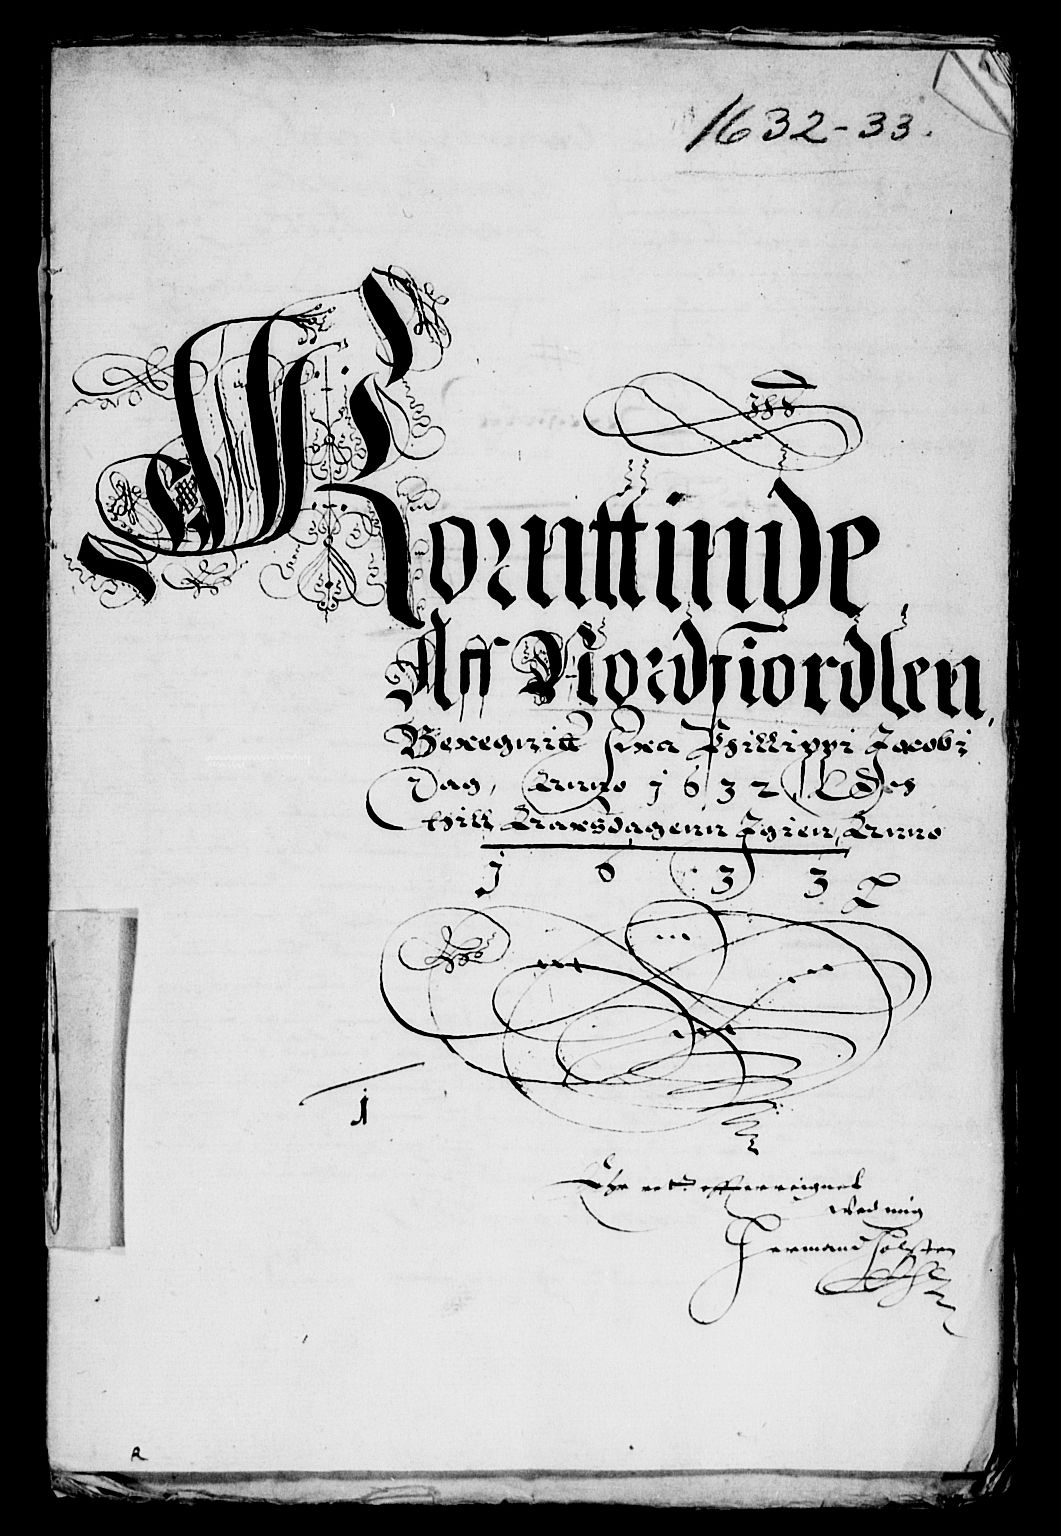 1632-33.
Kornttinde
Aff Nordfiordlen,
Beregnitt fra Phillippi Jacobi
Dag, Anno 1632, Och
thill Aarsdagenn Igien, Anno
1 6 3 3
1
ved mig
Hermand Holsten
R